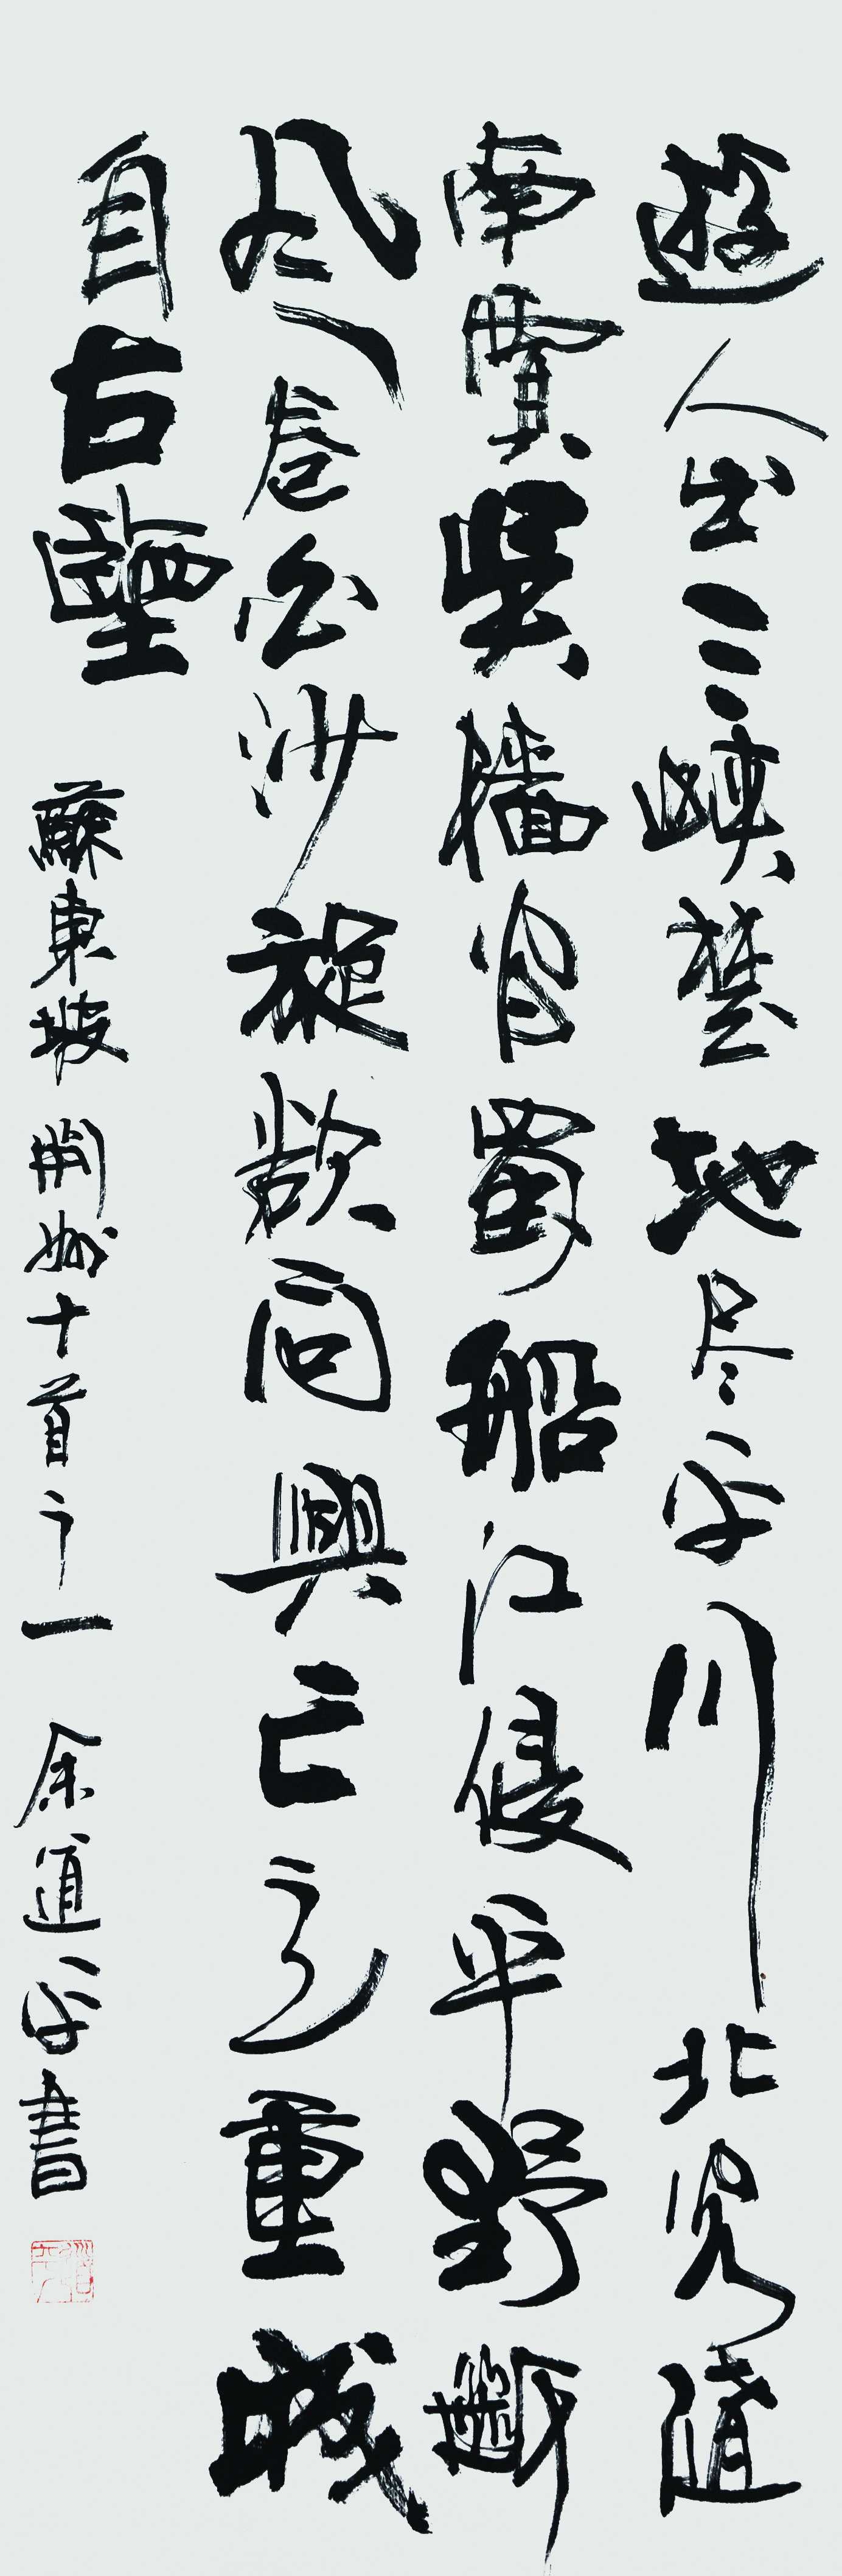 遊人出三峽楚地尽平川北客隨
南賈吳檣間蜀船江侵平野斷
風卷白沙旋欲問興亡意重城
自古堅
蘇東坡荆州十首之一 余道平書